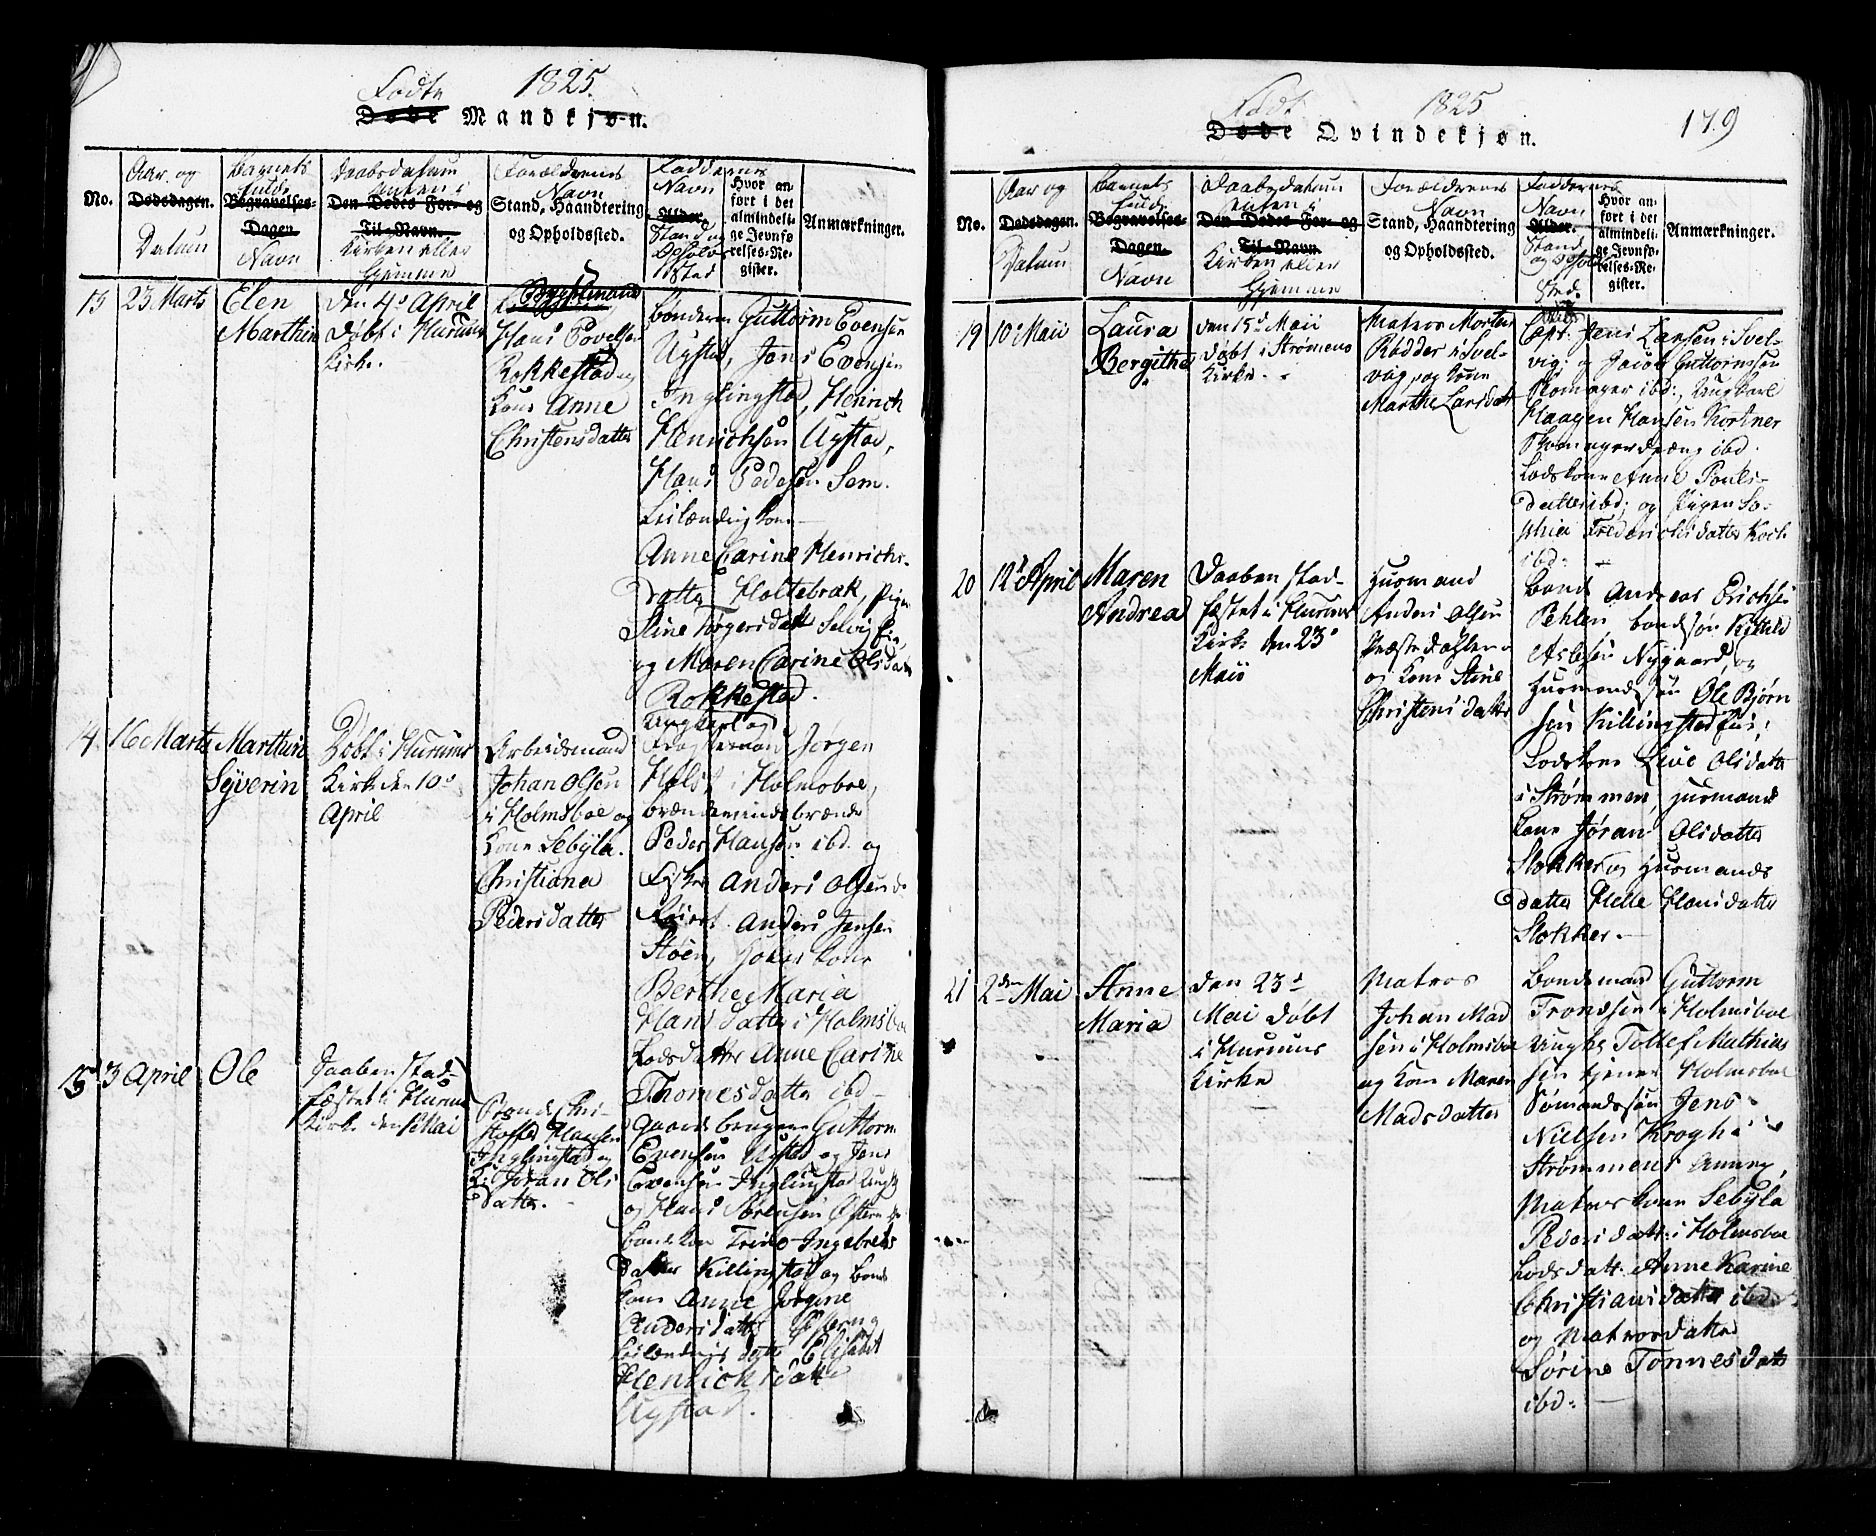 Fødte 1825.
Døde Mandkjøn.
No.
Aar og
Dødsdagen.
Datum
Barnets
fulde
Begravelses-
Dagen
Navn
Daabsdatum
enten i
Den Dødes For- og
Til-Navn.
Kirken eller
Hjemme
Forældrenes
Navn
Stand, Haandtering
og Opholdssted.
Faddernes
Navn
Alder.
Stand og
Opholds
sted
Hvor an-
ført i det
almindeli-
ge Jevnfø-
relses-Re-
gister.
Anmærkninger.
13
23 Marts
Elen
Marthea
den 4de April
døbt i Hurums
Kirke.
Hans Povelsen
Rokkestad og
Kone Anne
Christensdatter
Bønderne Guttorm Evensen
Ugstad, Jens Evensen
Inglingstad, Henrich
Henrichsen Ugstad,
Hans Pedersen Sem.
Leilændingkone
Anne Carine Henrichs-
datter Holtebrak, Pigen
Stine Torgersdatter Selvig
og Maren Carine Olsdatter
Rokkestad.
14.
16 Marts
Marthin
Syverin
Døbt i Hurums
Kirke den 10de
April
Arbeidsmand
Johan Olsen
i Holmsboe og
Kone Sebylla
Christiana
Pedersdatter
Ungkarl og
Jørgen
Holst i Holmsboe,
brændeviinsbrænder
Peder Hansen ibd. og
Fisker Anders Olsen
Anders Jensen
Støen, Kone
Berthe Maria
Hansdatter i Holmsboe
Lodsdatter Anne Carine
Thomesdatter ibd
15
3 April
Ole
Daaben stad-
fæstet i Hurums
Kirke den Mai
Christoffer Hansen
Inglingstad og
K. Jøran Ols
datter.
Gaardbrugerne Guttorm
Evensen Ugstad og Jens
Evensen Inglingstad
og Hans Sørensen Østern
bondekone Trine Ingebrets
datter Killingstad og bonde
kone Anne Jørgine
Andersdatter
Leilændings datter Elisabet
Henrichsdatter
Ugstad.
Født 1825 179
Døde Qvindekjøn.
No.
Aar og
Dødsdagen.
Datum
Barnets
fulde
Begravelses-
Dagen.
Navn
Daabsdatum
enten i
Den Dødes For- og
Til-Navn.
Kirken eller
Hjemme
Forældrenes
Navn
Stand, Haandtering
og Opholdssted.
Faddernes
Navn
Alder.
Stand
og Opholds
sted.
Hvor an-
ført i det
almindeli-
ge Jevnfø-
relses-Re-
gister.
Anmærkninger.
19
10de Maii
Laura
Bergithe
den 15de Maii
døbt i Strømens
Kirke.
Matros Morten
Rødder i Svel-
vig, og Kone
Marthe Larsdatter
Capt. Jens Larsen i Svel-
vig, og Jacob Guttormsen
Skomager ibd:, Ungkarl
Haagen Hansen Kortner
Skomagerdreng ibd.
Lodskone Anne Pouls-
datter ibd; og Pigen So-
phia Frederichsdatter Koch
ibd:
20
12te April
Maren
Andrea
Daaben stad-
fæstet i Hurums
Kirke den 23de
Maii
Huusmand
Anders Olsen
og Kone Stine
Christensdatter
Bonde Andreas Erichsen
Pehlen bondesøn Kittild
Aslesen Nygaard, og
Huusmandssøn Ole Bjørn
sen Killingstad
Lodskone Live Olsdatter
i Strømmen, Huusmands
kone Jøran Olsdatter
Stokker og Huusmands
datter Helle Hansdatter
Stokker.
21
2den Mai
Anne
Maria
den 23de
Mai døbt
i Hurums
Kirke
Matros
Johan Mad
sen i Holmsboe
og Kone Maren
Madsdatter
Bondemand Guttorm
Trondsen i Holmsboe
Tollef Mathias
sen tjener Holmsboe
Sømandssøn Jens
Nielsen Krogh i
Strømmens Annex,
Matroskone Sebylla
Pedersdatt: i Holmsboe
Lodsdatt. Anne Karine
Christiansdatter ibd
og Matrosdatter
Sørine Tønnesdatter
ibd: